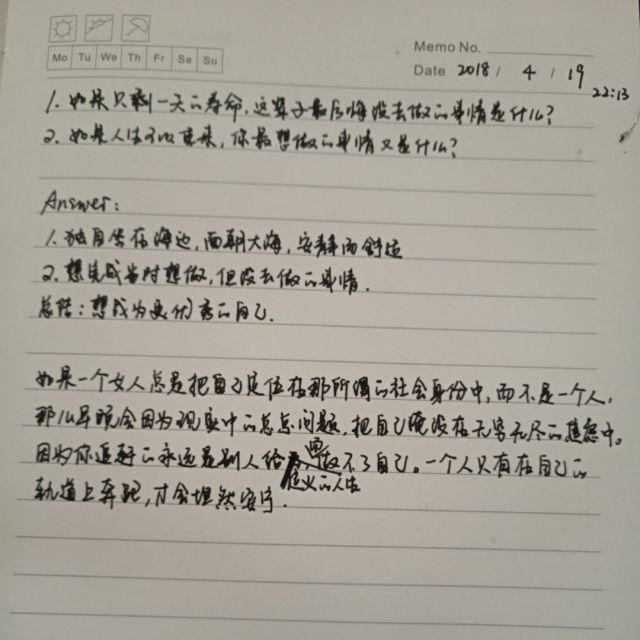 Mo Tu We Th Fr Sa Su
Memo No.
Date 2018 / 4 / 19
22:13
1. 如果只剩一天的寿命,这辈子最后悔没去做的事情是什么?
2. 如果人生可以重来,你最想做的事情又是什么?
Answer:
1. 独自坐在海边,面朝大海,安静而舒适
2. 想完成当时想做,但没去做的事情.
总结:想成为更优秀的自己.
如果一个女人总是把自己定位在那所谓的社会身份中,而不是一个人,
那么早晚会因为现实中的总总问题,把自己淹没在无穷无尽的焦虑中。
因为你追赶的永远是别人给 定义的人生 做不了自己。一个人只有在自己的
轨道上奔跑,才会坦然安宁.